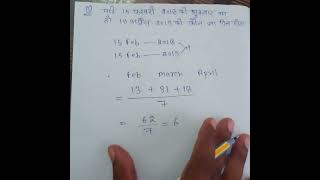 यदि 15 फरवरी 2018 को शुक्रवार था
तो 18 अप्रैल 2019 को कौन सा दिन होगा
15 Feb — 2018
15 Feb — 2019
+1
Feb March April
= 13 + 31 + 18
7
= 62
7 = 6